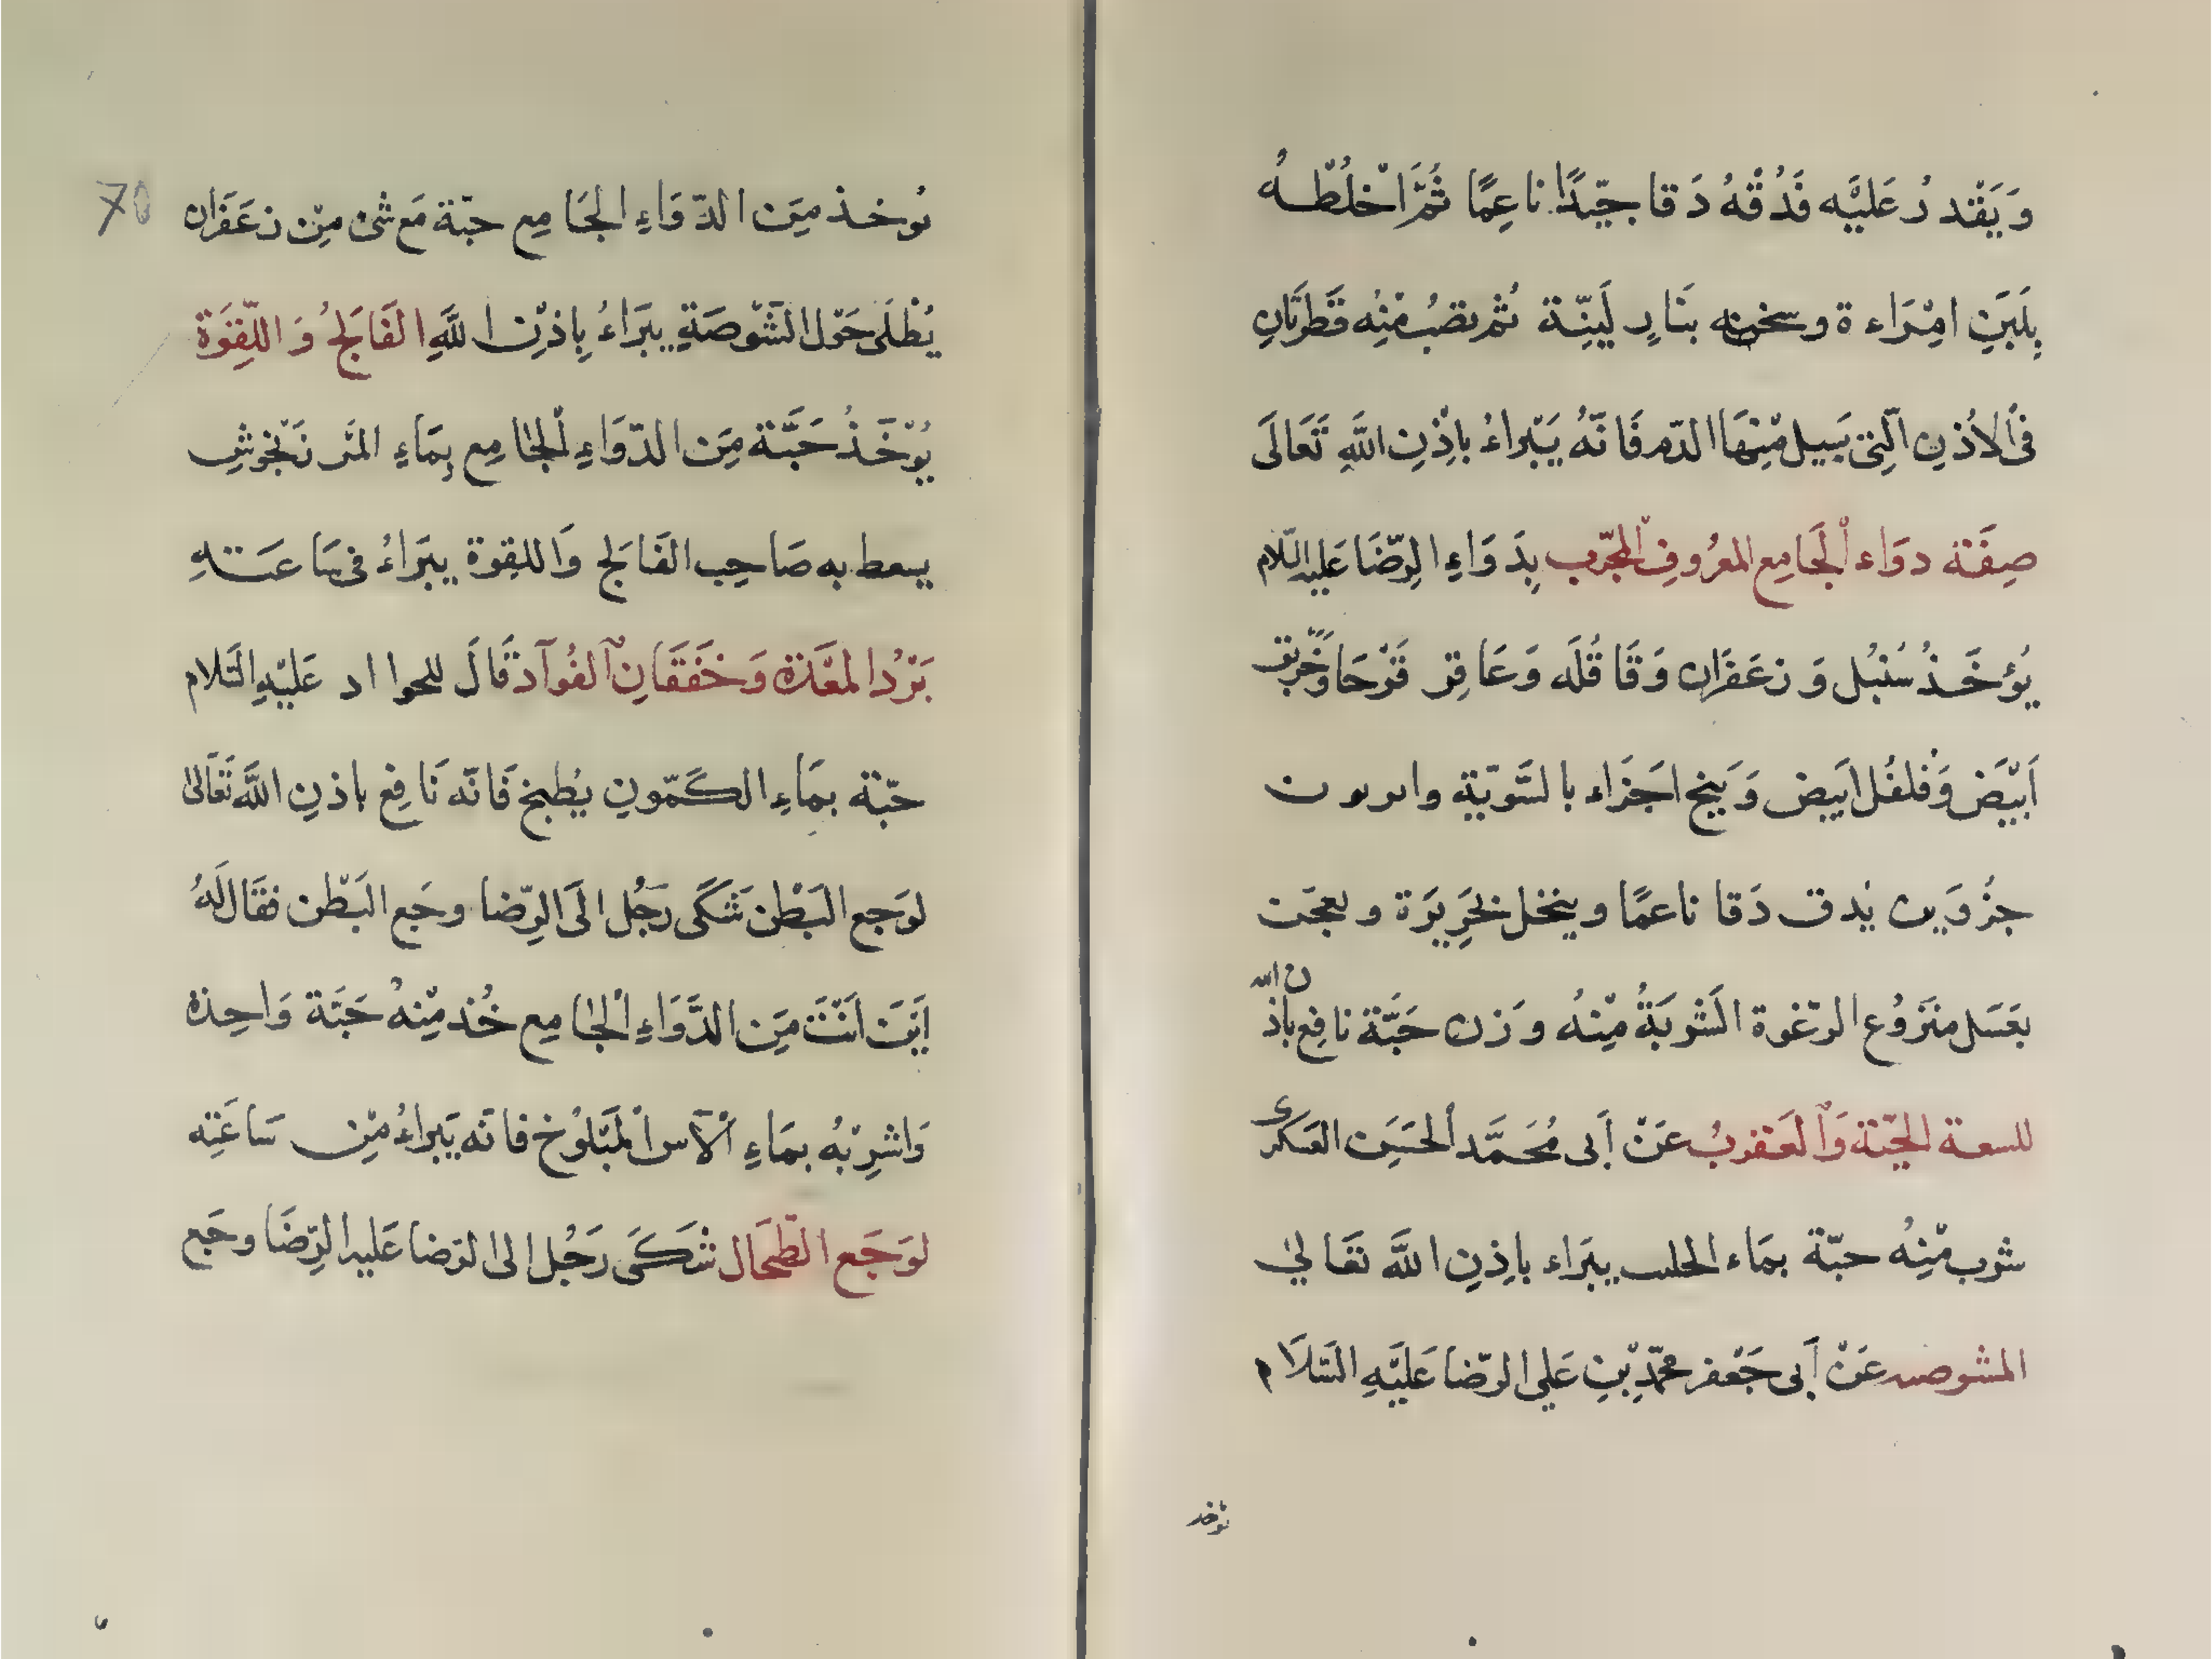 وَيَقْدرُ عَليَّه فَدُقْهُ دَقا جيّدًا ناعِمًا ثُمَّ اَخْلُطْهُ
بِلَبَنِ امِرَاءة وسخنه بنَارٍ لَيِنّة ثم تصُب مِنْه قَطرَتَانِ
فى الاُذنِ الّتِى يَسيل مِنْهَا الدّم فَانّهُ يَبْراءُ باِذْنِ اللَّهِ تَعَالَى
صِفَة دوَاء الْجَامِع المعرُوف الْمجرّب بِدَوَاءِ الرِّضَا عَليه السّلام
يُؤخَذُ سُنْبُل وَزعَفَران وَقَاقُلَه وَعَاقِر قَرْحَا وَخَربَق
اَبْيَض وَفُلفُل اَبيض وَبَنج اجَزاء بالسَّويّة وابربون
جزُوَين يُدق دَقا ناعمًا وينخل بِحَرِيرَة ويعجَن
بعَسَل منَزوُع الرّغوة الشَربَةُ مِنْهُ وَزن حَبَّة نافِع باذ
ن الله
للسعة الحيّة وَالْعَقربُ عَنْ اَبى مُحَمَّد الْحَسَن العَسكَرى
شرب مِنْهُ حبّة بمَاء الحلب يبَراء باِذنِ اللَّه تَعَالىٰ
المشوصه عَنْ اَبى جَعْفر محمّد بْنِ عَلى الرّضا عَليَّهِ السّلاَم
يؤخذ
70
يُوخذ مِنَ الدّوَاءِ الجَامِع حبّة مَع شئ مِنْ زعَفَران
يُطْلَى حَوْل الشَّوْصَةِ يبَراءُ بِاذْنِ اللَّهِ الفَالِجُ وَاللّقْوَة
يُؤْخَذُ حَبَّة مِنَ الدّوَاءِ الْجَامِع بِمَاءِ المَرزَنْجُوشِ
يسعط به صَاحِب الفَالِج وَاللقِوة يبَراءُ فى سَاعَتهِ
بَرْدُ المعَدَة وَخَفَقَانِ الْفُوآد قَالَ للحوااد عَليْهِ السَّلام
حبّة بمَاءِ الكَمّونِ يُطبخ فَانّه نَافِع باذنِ اللَّه تَعَالىٰ
لوَجع البَطْن شَكَى رَجُل الَى الرِّضا وجَع البَطْن فقَال لَهُ
اَيْنَ اَنْتَ مِنَ الدَّوَاءِ الْجٰامِع خُذ مِنهُ حَبَّة وَاحِدة
وَاشرِبْهُ بمَاءِ الْآس الْمَبْلوُخ فانّه يَبراءُ مِنْ سَاعَتِه
لوَجَع الطّحَال شَكَى رَجُل الى الرّضا عَليه الرِّضَا وجَع